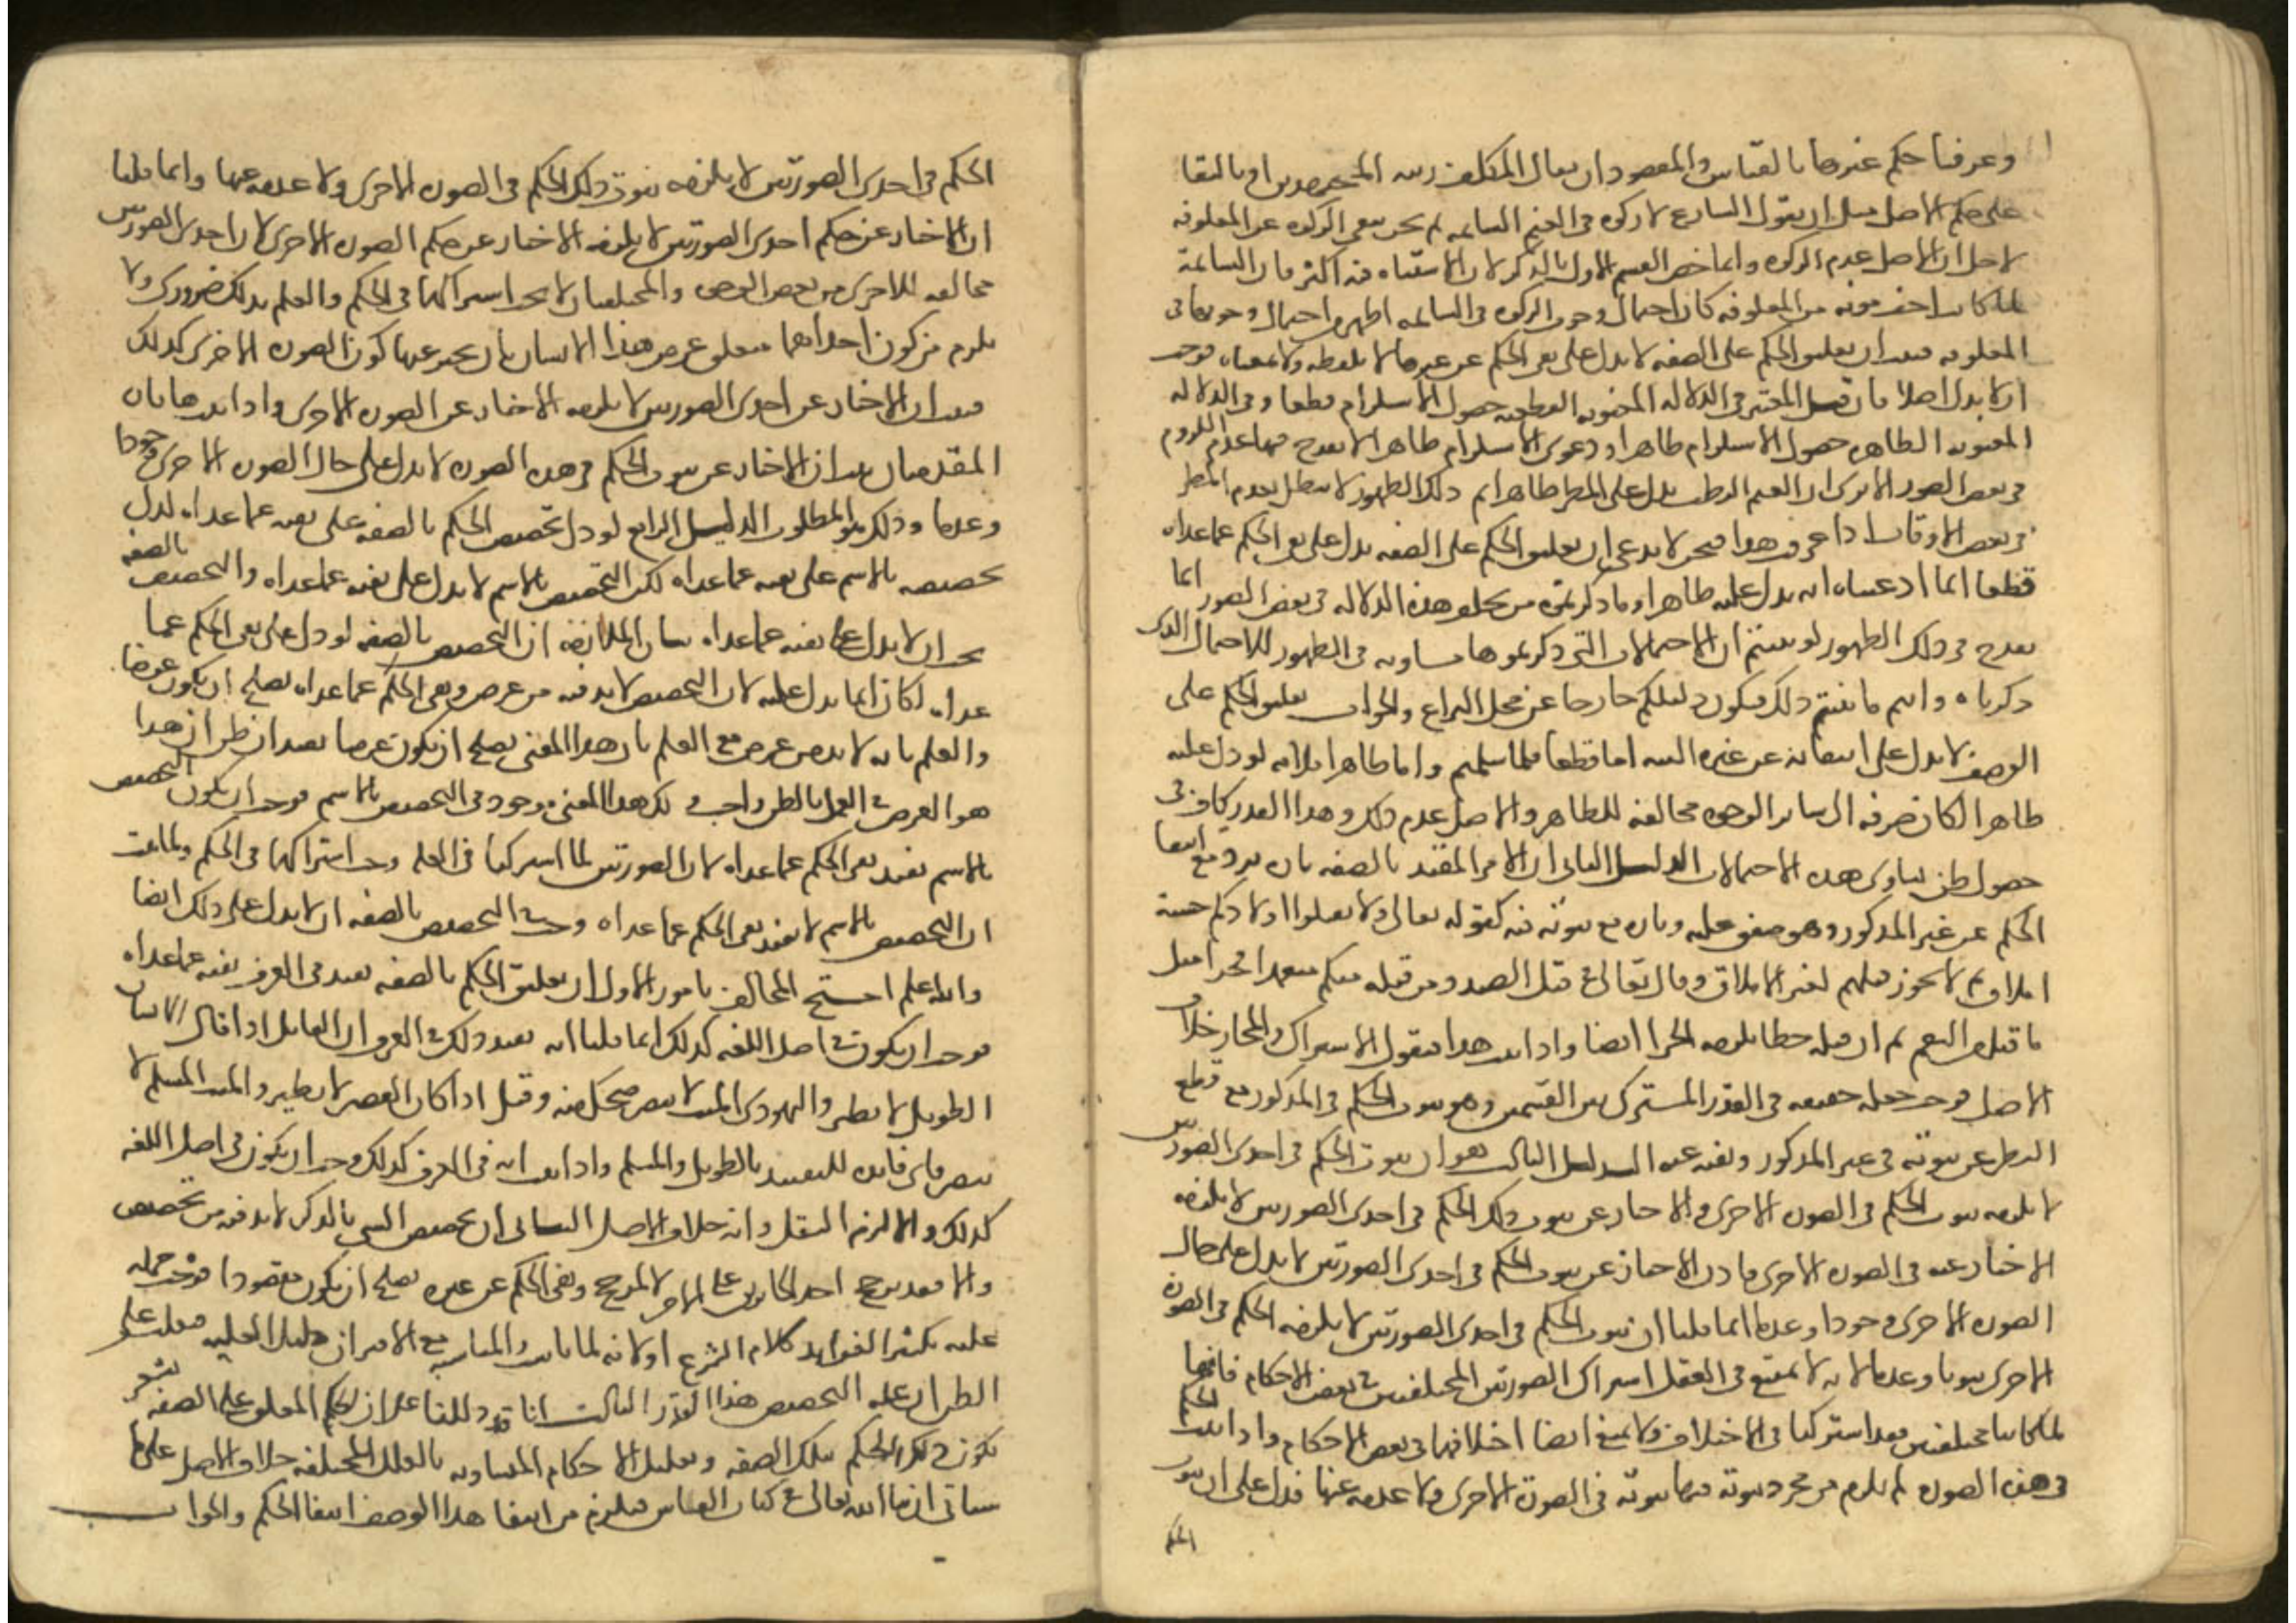 وعرفنا حكم غيرها بالقياس والمقصود ان ينال المكلف رتبه المجتهدين او بالبقا
على حكم الاصل مثل ان يقول الشارع لا زكوه في الغنم السايمه ثم نحن ننفي الزكوه عن المعلوفه
لاجل ان الاصل عدم الزكوه وانما خص القسم الاول بالذكر لان الاشتباه فيه اكثر فان السايمة
لما كانت اخف مونه من المعلوفه كان احتمال وجوب الزكوه في السايمه اظهر من احتمال وجوبها في
المعلوفه فثبت ان تعليق الحكم على الصفه لا يدل على نفي الحكم عن غيرها لا بلفظه ولا بمعناه فوجب
ان لا يدل اصلا فان قيل المعتبر في الدلاله المعنويه القطعيه حصول الاستلزام قطعا وفي الدلاله
المعنويه الظاهره حصول الاستلزام ظاهرا ودعوى الاستلزام ظاهرا لا يقدح فيها عدم اللزوم
في بعض الصور الا ترى ان الغيم الرطب يدل على المطر ظاهرا ثم ذلك الظهور لا يبطل بعدم المطر
في بعض الاوقات اذا عرفت هذا فنحن لا ندعي ان تعليق الحكم على الصفه يدل على نفي الحكم عما عداه
قطعا انما ادعينا انه يدل عليه ظاهرا وما ذكرتموه من تخلف هذه الدلاله في بعض الصور انما
يقدح في ذلك الظهور لو بينتم ان الاحتمالات التي ذكرتموها مساويه في الظهور للاحتمال الذي
ذكرناه وانتم ما بينتم ذلك فيكون دليلكم خارجا عن محل النزاع والجواب تعليق الحكم على
الوصف لا يدل على انتفائه عن غيره البته اما قطعا فلما سلمتم واما ظاهرا فلانه لو دل عليه
ظاهرا لكان صرفه الى ساير الوجوه مخالفه للظاهر والاصل عدم ذلك وهذا القدر كاف في
حصول ظن تساوي هذه الاحتمالات الدليل الثاني ان الامر المقيد بالصفه تارة يرد مع انتفا
الحكم عن غير المذكور وهو متفق عليه وتاره مع ثبوته فيه كقوله تعالى ولا تقتلوا اولادكم خشية
املاق ثم لا يجوز قتلهم لغير الاملاق وقال تعالى في قتل الصيد ومن قتله منكم متعمدا فجزا مثل
ما قتل من النعم ثم ان قتله خطا يلزمه الجزا ايضا واذا ثبت هذا فنقول الاشتراك والمجاز خلاف
الاصل فوجب جعله حقيقه في القدر المشترك بين القسمين وهو ثبوت الحكم في المذكور مع قطع
النظر عن ثبوته في غير المذكور ونفيه عنه الدليل الثالث هو ان ثبوت الحكم في احدى الصورتين
لا يلزمه ثبوت الحكم في الصوره الاخرى والاخبار عن ثبوت ذلك الحكم في احدى الصورتين لا يلزمه
الاخبار عنه في الصوره الاخرى فاذن الاخبار عن ثبوت الحكم في احدى الصورتين لا يدل على حال
الصوره الاخرى وجودا وعدما انما قلنا ان ثبوت الحكم في احدى الصورتين لا يلزمه الحكم في الصورة
الاخرى ثبوتا وعدما لانه لا يمتنع في العقل اشتراك الصورتين المختلفتين في بعض الاحكام فانهما
لما كانتا مختلفتين فقد اشتركتا في الاختلاف ولا يمتنع ايضا اختلافهما في بعض الاحكام واذا ثبت الحكم
في هذه الصوره لم يلزم من مجرد ثبوته فيها ثبوته في الصورة الاخرى ولا عدمه عنها فدل على ان ثبوت
الحكم
الحكم في احدى الصورتين لا يلزمه ثبوت ذلك الحكم في الصوره الاخرى ولا عدمه عنها وانما قلنا
ان الاخبار عن حكم احدى الصورتين لا يلزمه الاخبار عن حكم الصوره الاخرى لان احدى الصورتين
مخالفه للاخرى من بعض الوجوه والمختلفان لا يجب اشتراكهما في الحكم والعلم بذلك ضروري ولا
يلزم من كون احداهما متعلق غرض هذا الانسان بان يخبر عنها كون الصوره الاخرى كذلك
فثبت ان الاخبار عن احدى الصورتين لا يلزمه الاخبار عن الصوره الاخرى واذا ثبت هاتان
المقدمتان ثبت ان الاخبار عن ثبوت الحكم في هذه الصوره لا يدل على حال الصوره الاخرى وجودا
وعدما وذلك هو المطلوب الدليل الرابع لو دل تخصيص الحكم بالصفه على نفيه عما عداه لدل
تخصيصه بالاسم على نفيه عما عداه لكن التخصيص بالاسم لا يدل على نفيه عما عداه والتخصيص بالصفه
يجب ان لا يدل على نفيه عما عداه بيان الملازمة ان التخصيص بالصفه لو دل على نفي الحكم عما
عداه لكان انما يدل عليه لان التخصيص لا بد فيه من غرض ونفي الحكم عما عداه يصلح ان يكون غرضا
والعلم بانه لا بد من غرض مع العلم بان هذا المعنى يصلح ان يكون غرضا يفيد ان ظن ان هذا
هو الغرض والعمل بالظن واجب لكن هذا المعنى موجود في التخصيص بالاسم فوجب ان يكون التخصيص
بالاسم يفيد نفي الحكم عما عداه لان الصورتين لما اشتركتا في العله وجب اشتراكهما في الحكم ولما ثبت
ان التخصيص بالاسم لا يفيد نفي الحكم عما عداه وجب في التخصيص بالصفه ان لا يدل على ذلك ايضا
والله اعلم احتج المخالف بامور الاول ان تعليق الحكم بالصفه يفيد في العرف نفيه عما عداه
فوجب ان يكون في اصل اللغه كذلك انما قلنا انه يفيد ذلك في العرف ان القايل اذا قال الانسان
الطويل لا يطير واليهودي الميت لا يبصر ضحك منه وقيل اذا كان القصير لا يطير والميت المسلم لا
يبصر فاي فايده للتقييد بالطويل والمسلم واذا ثبت انه في العرف كذلك وجب ان يكون في اصل اللغه
كذلك والا لزم النقل وانه خلاف الاصل الثاني ان تخصيص الشي بالذكر لا بد فيه من تخصيص
والا فقد ترجح احد الجايزين على الاخر لا لمرجح ونفي الحكم عن غيره يصلح ان يكون مقصودا فوجب حمله
عليه تكثيرا لفوايد كلام الشرع اولانه لمناسب والمناسبه مع الاقتران دليل العليه فغلب على
الظن ان عله التخصيص هذا القدر الثالث انا قد دللنا على ان الحكم المعلق على الصفه يشعر
بكون ذلك الحكم بتلك الصفه وتعليل الاحكام المتساويه بالعلل المختلفه خلاف الاصل على ما
سياتي ان شا الله تعالى في كتاب القياس فيلزم من انتفا هذا الوصف انتفا الحكم والجواب